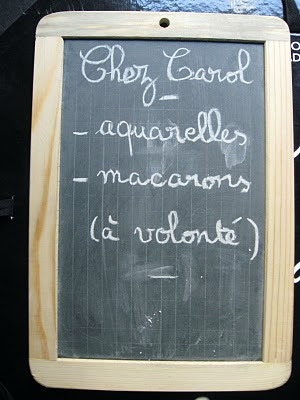 Chez Carol
-
- aquarelles
- macarons
(à volonté)
-